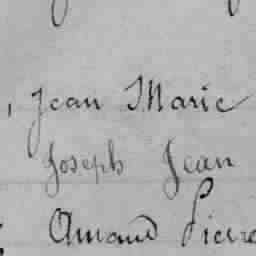 , Jean Marie
Joseph Jean
Amand Pierre